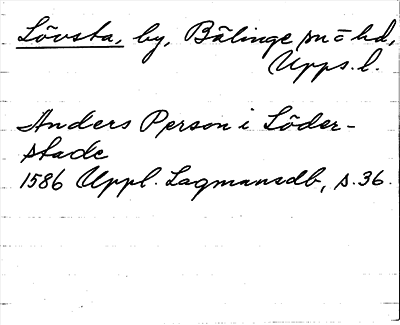 Lövsta, by, Bälinge sn o hd,
Upps. l.
Anders Person i Söder-
stade
1586 Uppl. Lagmansdb, s. 36.